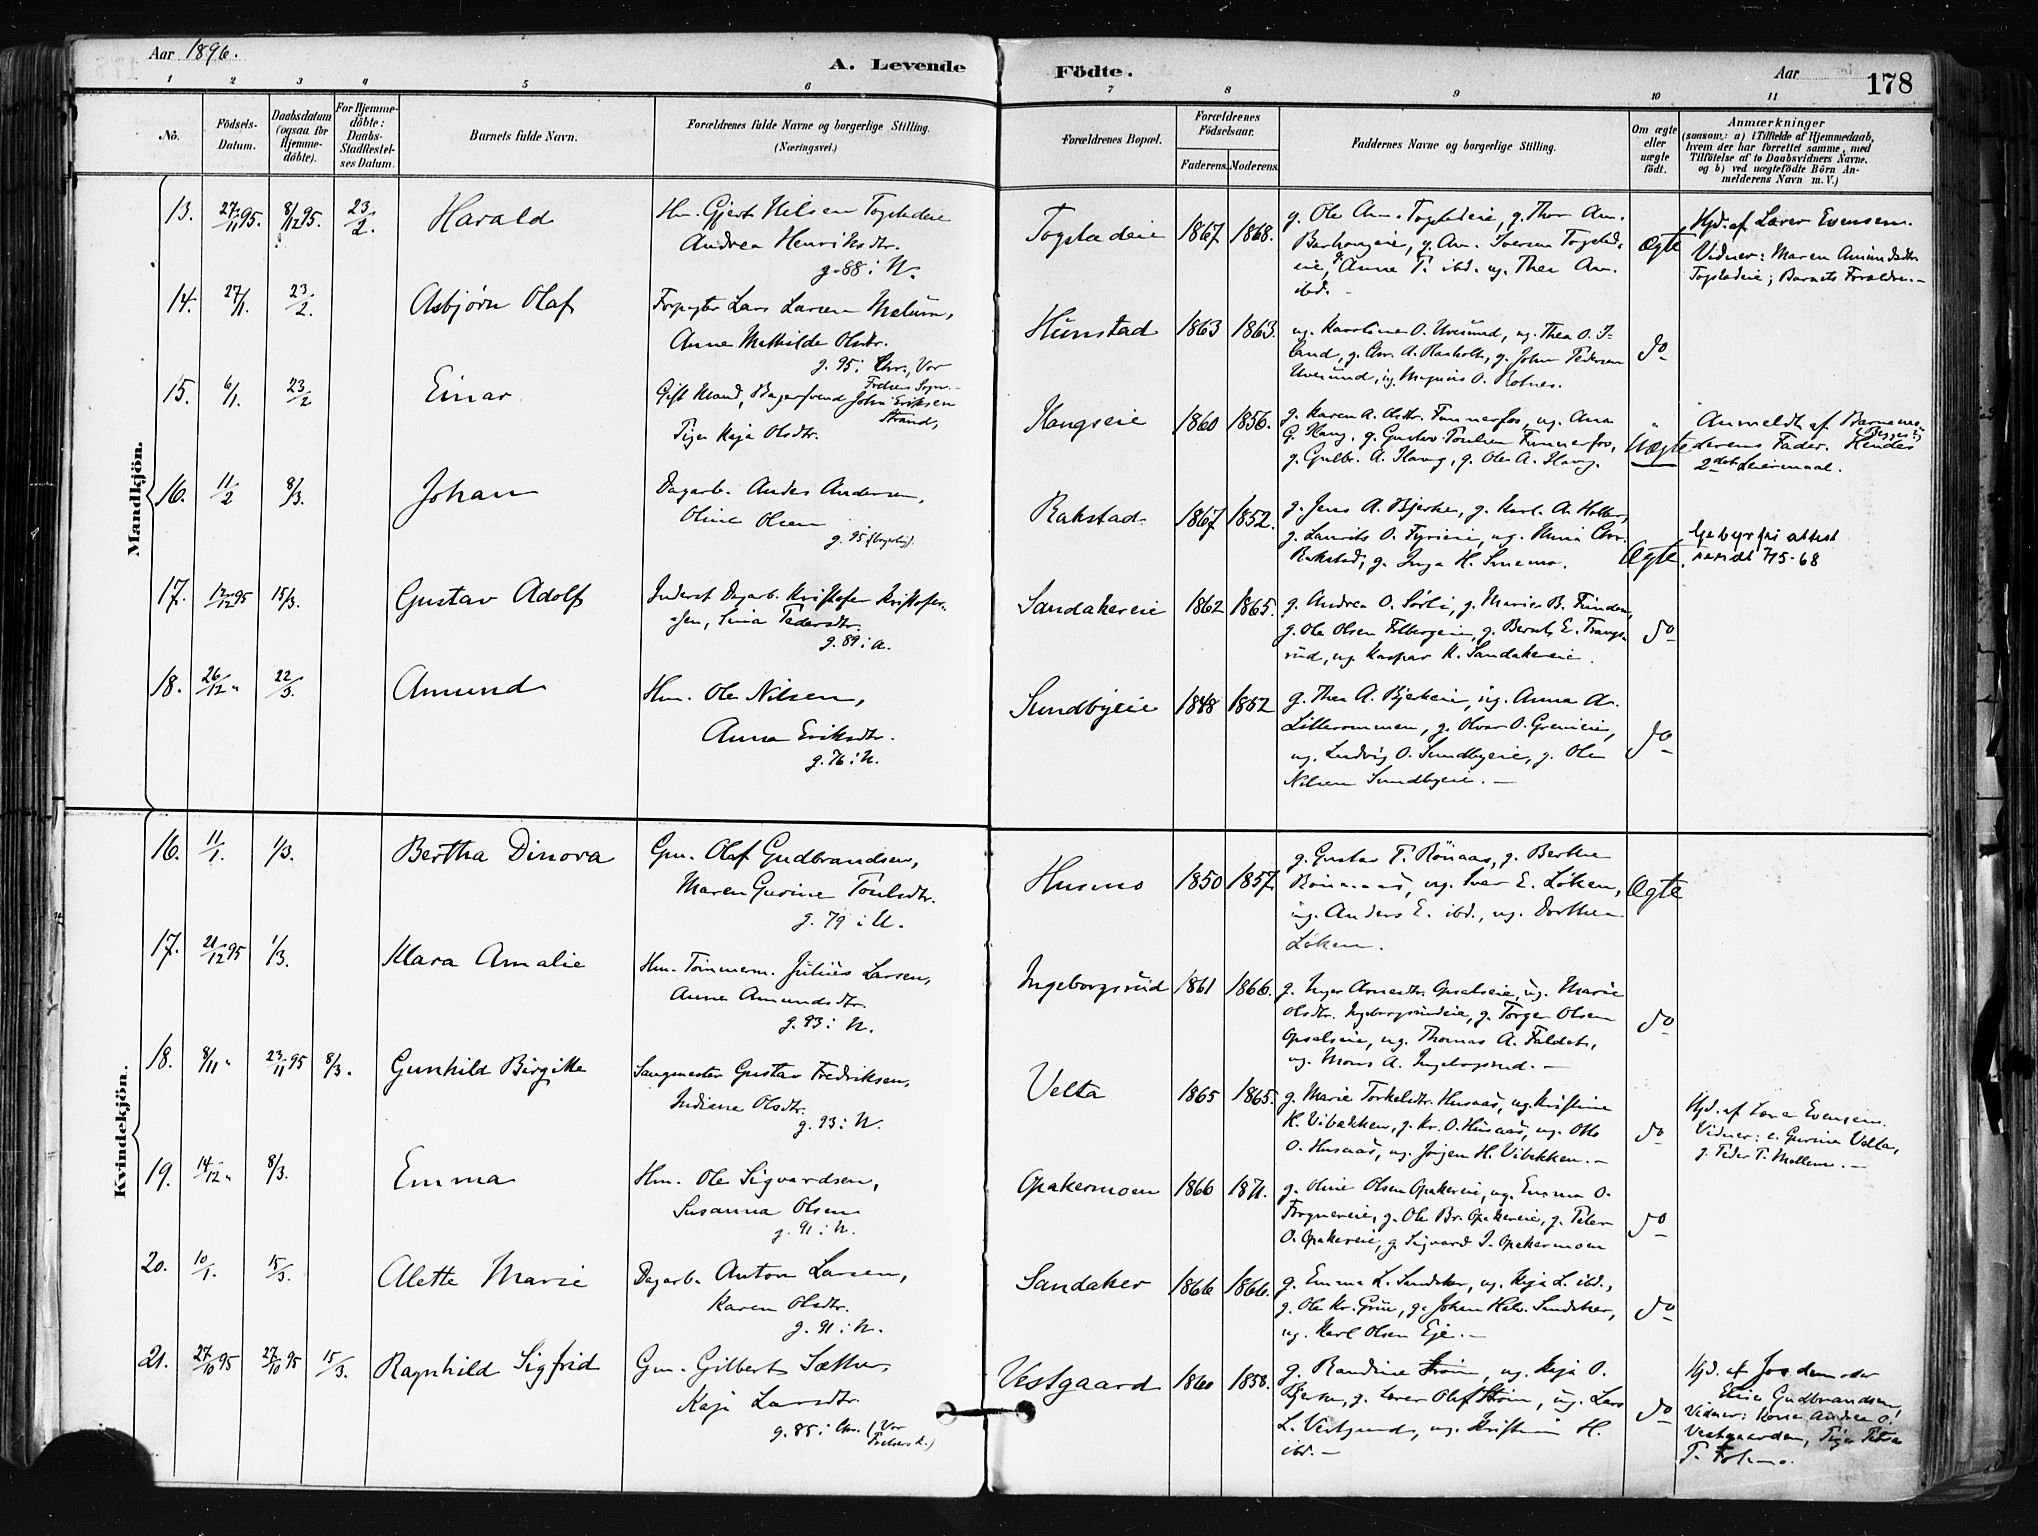 Aar 1896.
A. Levende
Födte.
Aar
178
1 2 3 4 5 6 7 8 9 10 11
No.
Födsels-
Datum.
Daabsdatum
(ogsaa for
Hjemme-
döbte).
For Hjemme-
döbte:
Daabs-
Stadfæstel-
ses Datum.
Barnets fulde Navn.
Forældrenes fulde Navne og borgerlige Stilling.
(Næringsvei.)
Forældrenes Bopæl.
Forældrenes
Födselsaar.
Faderens. Moderens.
Faddernes Navne og borgerlige Stilling.
Om ægte
eller
uægte
födt.
Anmærkninger
(saasom: a) i Tilfælde af Hjemmedaab,
hvem der har forrettet samme, med
Tilföielse af to Daabsvidners Navne.
og b) ved uægtefödte Börn An-
melderens Navn m. V.)
Mandkjön.
13. 27/11 95. 8/12 95. 23/2. Harald
Hm. Gjert Nilsen Togstadeie
Andrea Henriksdtr.
g. 88 i N.
Togstadeie 1867 1868.
g. Ole Am. Togstadeie, g. Thor Am.
eie, Anne T. ibd. ug. Thea Am.
ibd. -
Ægte
Hjd. af Lærer Evensen.
Vidner: Maren Amundsdtr.
Togstadeie; Barnets Forældre. -
14. 27/1. 23/2. Asbjørn Olaf
Forpagter Lars Larsen Melum,
Anne Mathilde Olsdtr.
g. 95 i Chr., Vor
Frelsers Sogn. -
Hunstad 1863 1863.
g. John Pedersen
do
15. 6/1. 23/2 Einar
Gift Mand, Bagersvend John Eriksen
Strand,
Pige Kaja Olsdtr.
Haugseie 1860 1856.
g. Karen A. Olsdtr. Funnefos, ug. Ana
G. Haug, g. Gustav Paulsen Funnefos,
g. Gulbr. A. Haug, g. Ole A. Haug.
Uægte
Anmeldt af Barnemo-
derens Fader. Hendes
2det Leiermaal.
16. 11/2 8/3. Johan
Dagarb. Andes Andersen,
Oline Olsen
g. 95
Rakstad 1867 1852.
g. Jens A. Bjerke, g. Karl A. Holter,
Rakstad, g. Inga H.
Ægte.
Gebyr for attest
17. 12/12 95 15/3. Gustav Adolf
Inderst Dagarb. Kristofer Kristofer-
sen, Lina Pedersdtr.
g. 89 i A.
Sandakereie 1862 1865.
g. Andrea O. Sørli, g. Marie B. Funden,
g. Ole Olsen Folbergeie, g. Bernt E. Trangs-
rud, ug. Kaspar K. Sandakereie.
do
18. 26/12 " 22/3. Amund
Hm. Ole Nilsen,
Anna Eriksdtr.
g. 76 i N.
Sundbyeie 1848 1852
g. Thea A. Bjerkeie, ug. Anna A.
Lillerommen, g. Olvar O. Greneie,
ug. Ludvig O. Sundbyeie, g. Ole
Nilsen Sundbyeie. -
do
Kvindekjön.
16. 11/1. 1/3. Bertha Dinora
Gm. Olaf Gudbrandsen,
Maren Gurine Poulsdtr.
g. 79 i U.
Husmo 1850 1857.
g. Gustav P. Rönaas, g. Berthe
Rönaas, ug. Iver E. Løken,
ug. Anders E. ibd., ug. Dorthea
Løken.
Ægte
17. 21/12 95 1/3. Klara Amalie
Hm. Tømmerm. Julius Larsen,
Anne Amundsdtr.
g. 93 i N.
Ingeborgsrud 1861 1866.
g. Inger Arnesdtr. Opsalseie, ug. Marie
Olsdtr. Ingeborgsrudeie, g. Torger Olsen
Opsalseie, ug. Thomas A. Faldet,
ug. Mons A. Ingeborgsrud. -
do
18. 8/11 " 23/11 95 8/3. Gunhild Birgitte
Saugmester Gustav Fredriksen,
Indiana Olsdtr.
g. 93 i N.
Velta 1865 1865.
g. Marie Torkelsdtr. Husaas, ug. Kristine
K. Vibekken, g. Kr. O. Husaas, ug. Otto
O. Husaas, ug. Jørgen H. Vibekken. -
do
Hjd. af Lærer Evensen.
Vidner: e. Gurine Velta,
g. Peder P. Mellem. -
19. 14/12 " 8/3. Emma
Hm. Ole Sigvardsen,
Susanna Olsen
g. 91 i N.
Opakermoen 1866 1871.
g. Oline Olsen Opakereie, ug. Emma O.
Forgnereie, g. Ole Br. Opakereie, g. Peter
O. Opakereie, g. Sigvard J. Opakermoen
do
20. 10/1. 15/3. Alette Marie
Dagarb. Anton Larsen,
Karen Olsdtr.
g. 91 i N.
Sandaker 1866 1866.
g. Emma L. Sandaker, ug. Kaja L. ibd.,
g. Ole Kr. Grue, g. Johan Halv. Sandaker,
ug. Karl Olsen Eje. -
do
21. 27/10 95 27/10 95 15/3. Ragnhild Sigfrid
Gm. Gilbert Sætter,
Kaja Larsdtr.
g. 85 i Chr. (Vor
Frelsers K.)
Vestgaard 1860 1858.
g. Randine Strøm, ug. Kaja O.
Bjerke, g. Lærer Olaf Strøm, ug. Lars
L. Vestgaard, ug. Kristian H.
ibd. -
do
Hjd. af Jordemoder
Eline Gudbrandsen,
Vidner: Kone Andrea O.
Vestgaarden, Pige Petra
P.